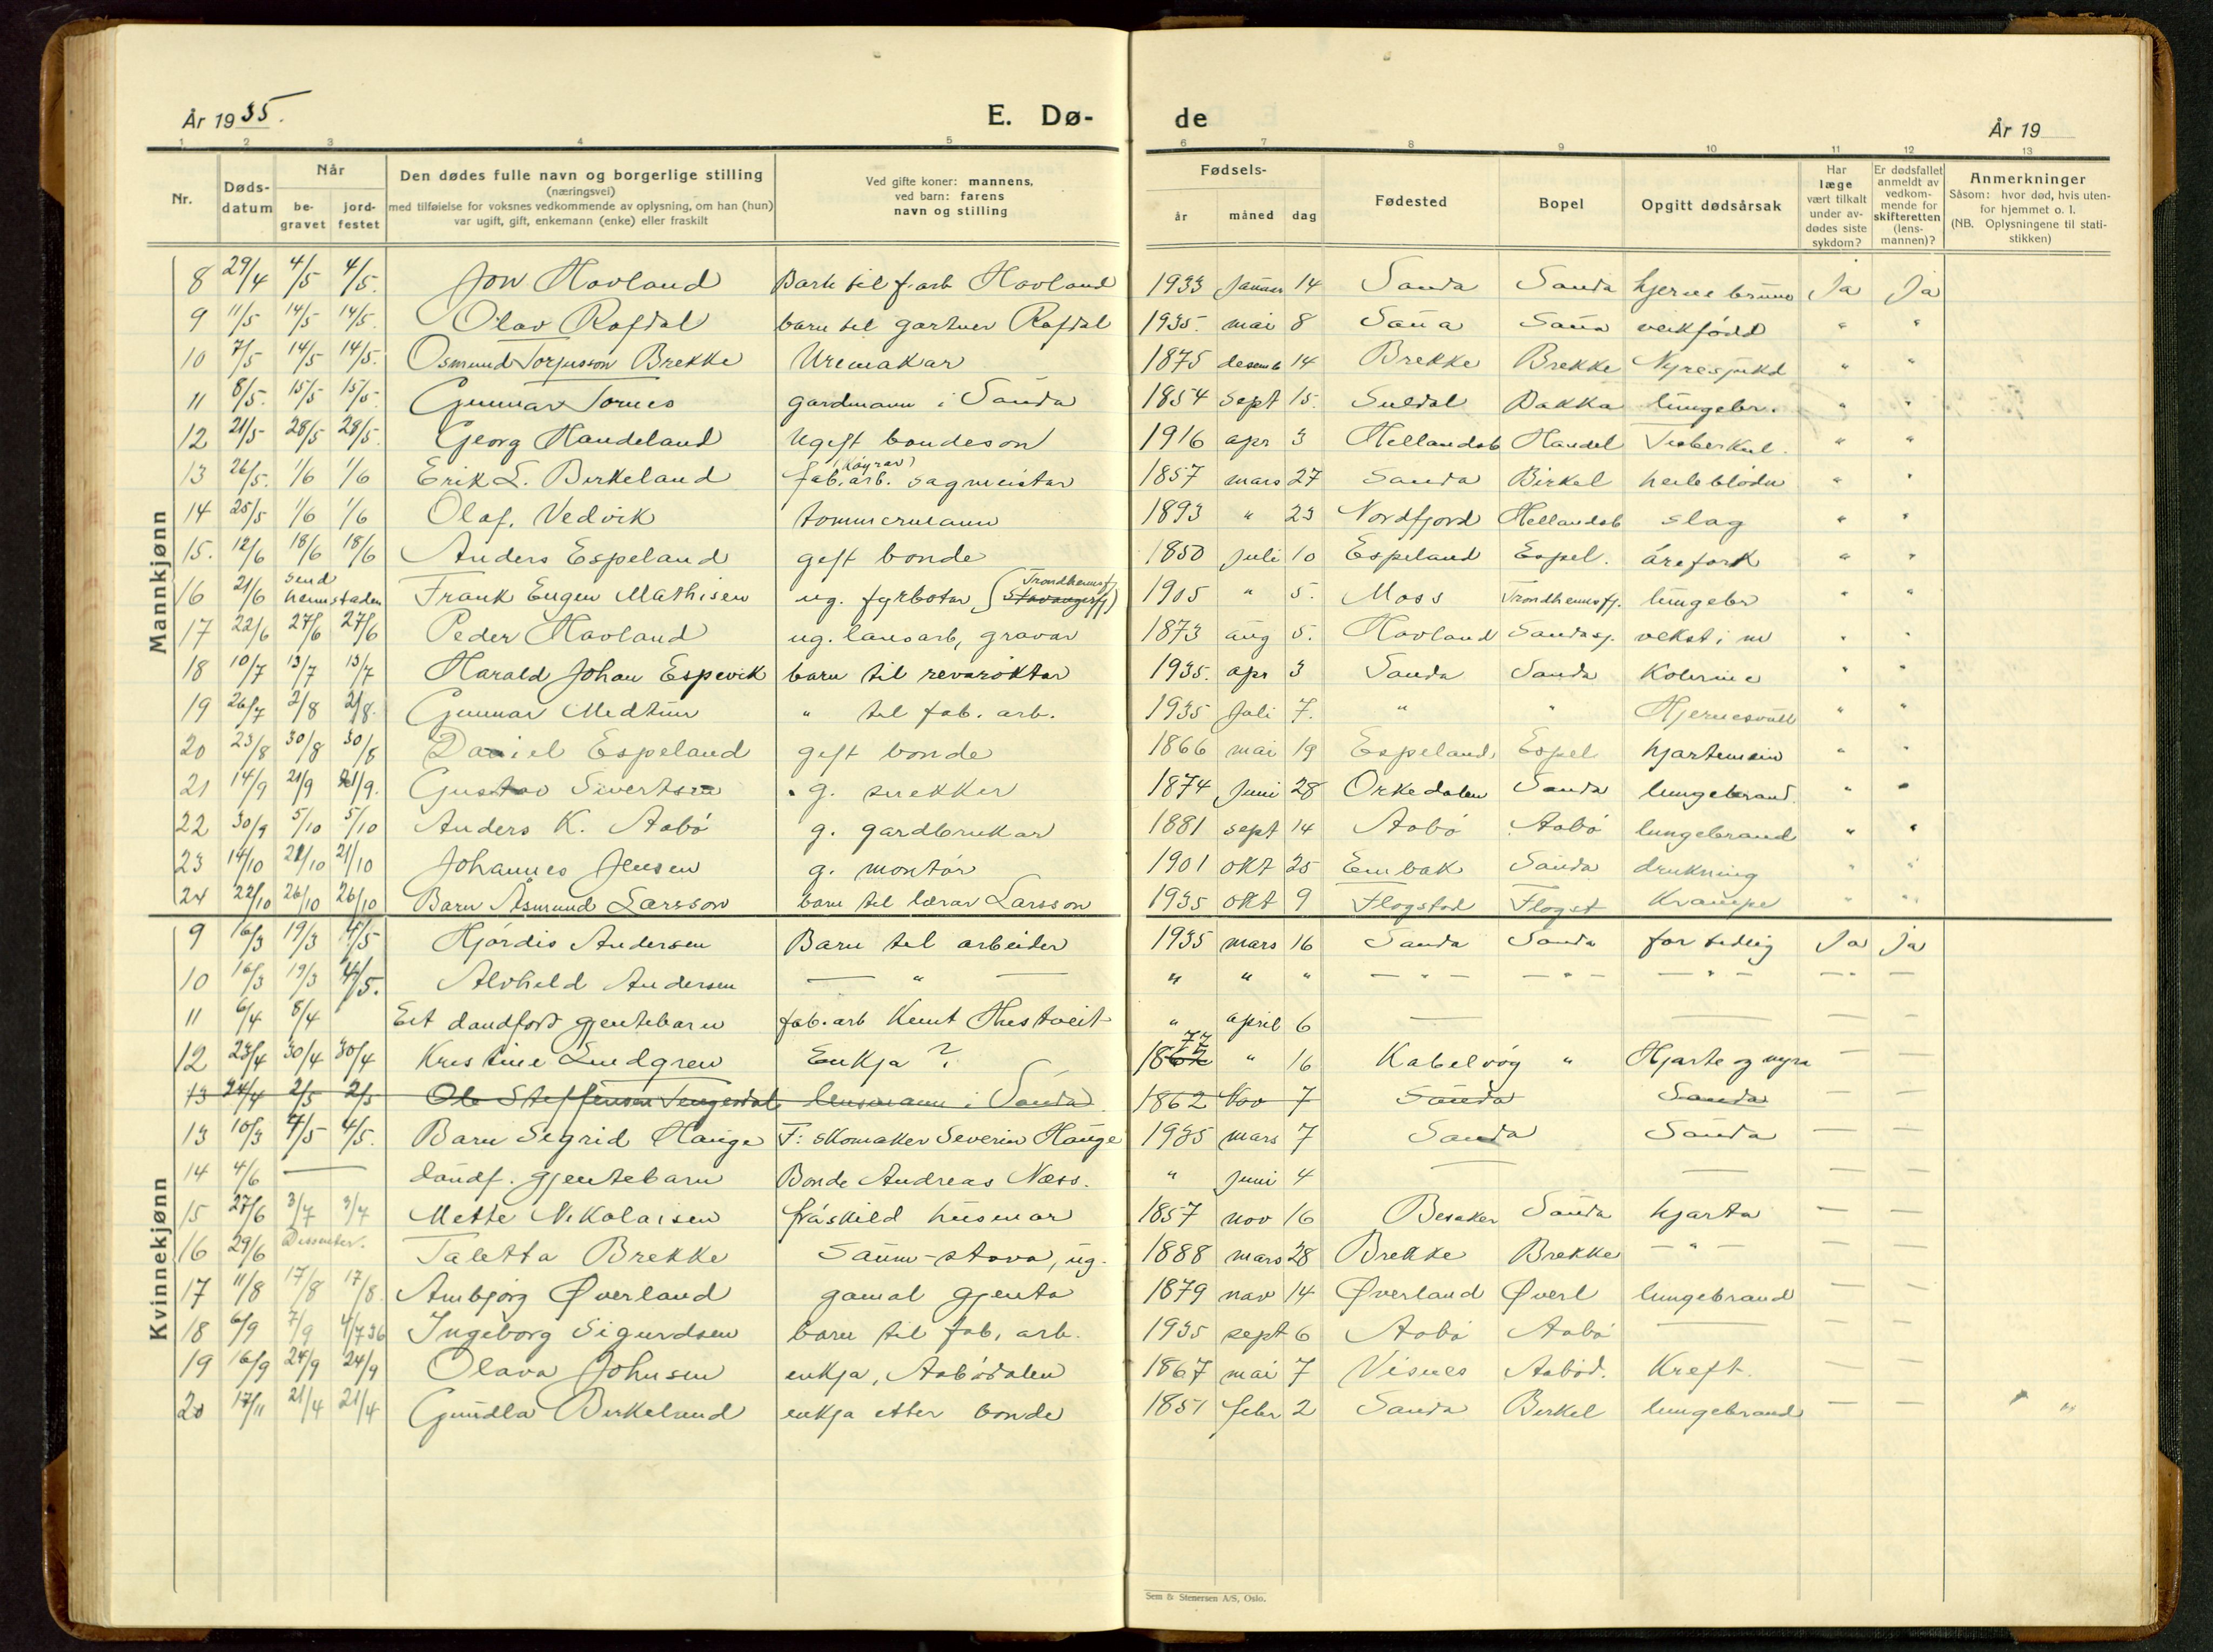 År 1935.
E. Dø-
de
År 19
1 2 3 4 5 6 7 8 9 10 11 12 13
Nr. Døds-datum Når be-gravet jord-festet Den dødes fulle navn og borgerlige stilling (næringsvei) med tilføielse for voksnes vedkommende av oplysning, om han (hun) var ugift, gift, enkemann (enke) eller fraskilt Ved gifte koner: mannens, ved barn: farens navn og stilling Fødsels- år måned dag Fødested Bopel Opgitt dødsårsak Har læge vært tilkalt under av-dødes siste sykdom? Er dødsfallet anmeldt av vedkom-mende for skifteretten (lens-mannen)? Anmerkninger Såsom: hvor død, hvis uten-for hjemmet o. l. (NB. Oplysningene til stati-stikken)
Mannkjønn
8 29/4 4/5 4/5. Jon Havland Barn til f. arb Havland 1933 januar 14 Sauda Sauda hjernebruno Ja Ja
9 11/5 14/5 14/5. Olav Rafdal barn til gartner Rafdal 1935. mai 8 Saua Saua veikfödd " "
10 7/5 14/5 14/5. Osmund Torjusson Brekke Uremakar 1875 desemb 14 Brekke Brekke Nyresjukd " "
11 8/5. 15/5 15/5. Gunnar Tornes gardmann i Sauda 1854 sept 15. Suldal Bakka lungebr. " "
12 21/5 28/5 28/5. Georg Handeland Ugift bondeson 1916 apr 3 Hellandsb Handel Tuberkul. " "
13 26/5. 1/6 1/6 Erik L. Birkeland fab. arb. (Køyrar) sagmeistar 1857 mars 27 Sauda Birkel heileblødn " "
14 25/5 1/6 1/6 Olaf. Vedvik tømmermann 1893 " 23 Nordfjord Hellandsb slag " "
15. 12/6 18/6 18/6 Anders Espeland gift bonde 1850 juli 10 Espeland Espel. årefork " "
16 21/6 Send heimstaden Frank Eugen Mathisen ug. fyrbøtar (Stavangerfj) Trondheimsfj 1905 " 5. Moss Trondheimsfj. lungebr " "
17 22/6 27/6 27/6 Peder Havland ug. lausarb, gravar 1873 aug 5. Havland Saudasj. vekst i m " "
18 10/7 13/7 13/7 Harald Johan Espevik barn til revarøktar 1935. apr 3 Sauda Sauda Kolerine " "
19 26/7 2/8 2/8. Gunnar Medtun " til fab. arb. 1935 juli 7. " " Hjernesvull " "
20 23/8 30/8 30/8 Daniel Espeland gift bonde 1866 mai 19 Espeland Espel hjartemein " "
21 14/9 21/9 21/9. Gustav Sivertsen g. snekker 1874 juni 28 Orkedalen Sauda lungebrand. " "
22 30/9 5/10 5/10 Anders K. Aabø g. gardbrukar 1881 sept 14 Aabø Aabø lungebrand " "
23 14/10 21/10 21/10 Johannes Jensen g. montør 1901 okt 25 Sauda drukning " "
24 22/10 26/10 26/10 Barn Åsmund Larsson barn til lærar Larsson 1935 okt 9 Flogstad Flogst Krampe " "
Kvinnekjønn
9 16/3 19/3 4/5 Hjördis Andersen Barn til arbeider 1935 mars 16 Sauda Sauda for tidlig Ja Ja
10 16/3 19/3 4/5. Alvhild Andersen — " — " " " — " — — " — — " — — —
11 6/4 8/4 Eit daudfødt gjentebarn fab. arb Knut Hustveit " april 6 — — — —
12 23/4 30/4 30/4 Kristine Lindgren Enkja ? 1877 " 16 Kabelvåg " Hjarte og nyra — —
13 24/4 2/5 2/5 Ole Steffensen Tengesdal lensmann i Sauda. 1862 Nov 7 Sauda Sauda — —
13 10/3 4/5 4/5. Barn Sigrid Hauge F: skomaker Severin Hauge 1935 mars 7 Sauda Sauda — —
14 4/6 — daudf. gjentebarn Bonde Andreas Næss. " juni 4 — — — —
15 27/6 3/7 3/7 Mette Nikolaisen fråskild husmor 1857 nov 16 Besaker Sauda hjarta — —
16 29/6 Desember. Taletta Brekke Saum-stova, ug. 1888 mars 28 Brekke Brekke — " — — —
17 11/8 17/8 17/8. Ambjørg Øverland gamal gjenta 1879 nov 14 Øverland Øverl lungebrand — —
18 6/9 7/9 4/7 36 Ingeborg Sigurdsen barn til fab. arb. 1935 sept 6 Aabø Aabø — — —
19 16/9 24/9 24/9 Olava Johnsen enkja, Aabødalen 1867 mai 7 Visnes Aabød. Kreft. — —
20 17/11 21/4 21/4 Gundla Birkeland enkja etter bonde 1851 febr 2 Sauda Birkel lungebrand — —
Sem & Stenersen A/S, Oslo.